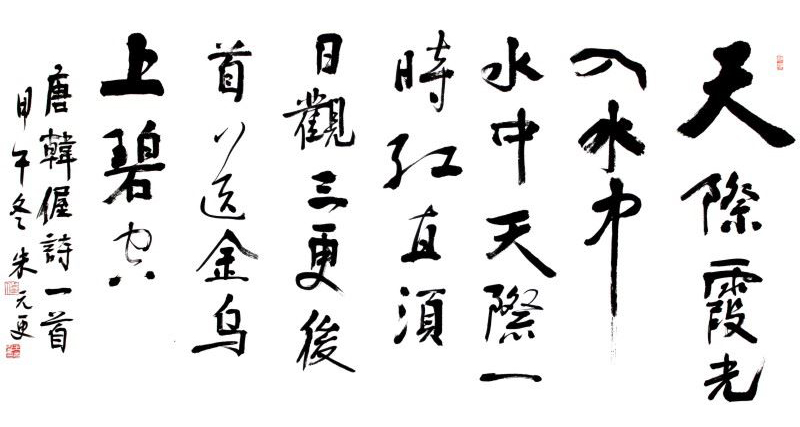 天際霞光
入水中
水中天際一
時紅直須
日觀三更後
首送金烏
上碧空
唐韓偓詩一首
甲午冬朱元更